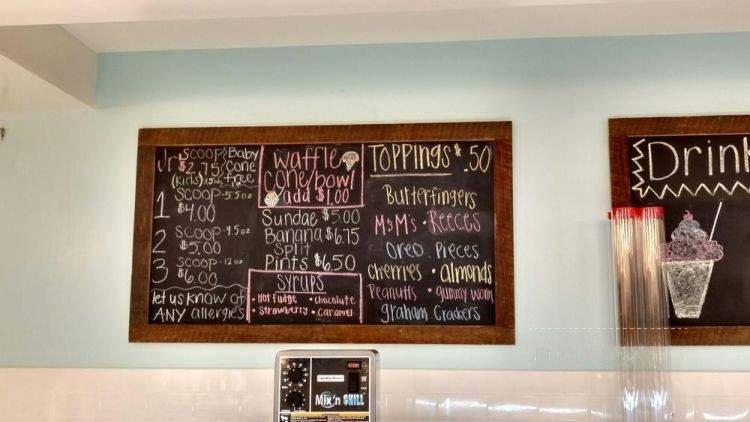 Jr Scoop/Baby
$2.75/cone
(kids) free
1 Scoop-5.5oz
$4.00
2 Scoop-9.5oz
$5.00
3 Scoop-12oz
$6.00
let us know of
ANY allergies
waffle
cone/bowl
add $1.00
Sundae $5.00
Banana $6.75
Split
Pints $6.50
syrups
• Hot fudge • chocolate
• Strawberry • caramel
TOPPINGS $.50
Butterfingers
M&M's • Reeces
Oreo Pieces
cherries • almonds
Peanutts • gummy worm
graham Crackers
Drink
Mix'n CHILL